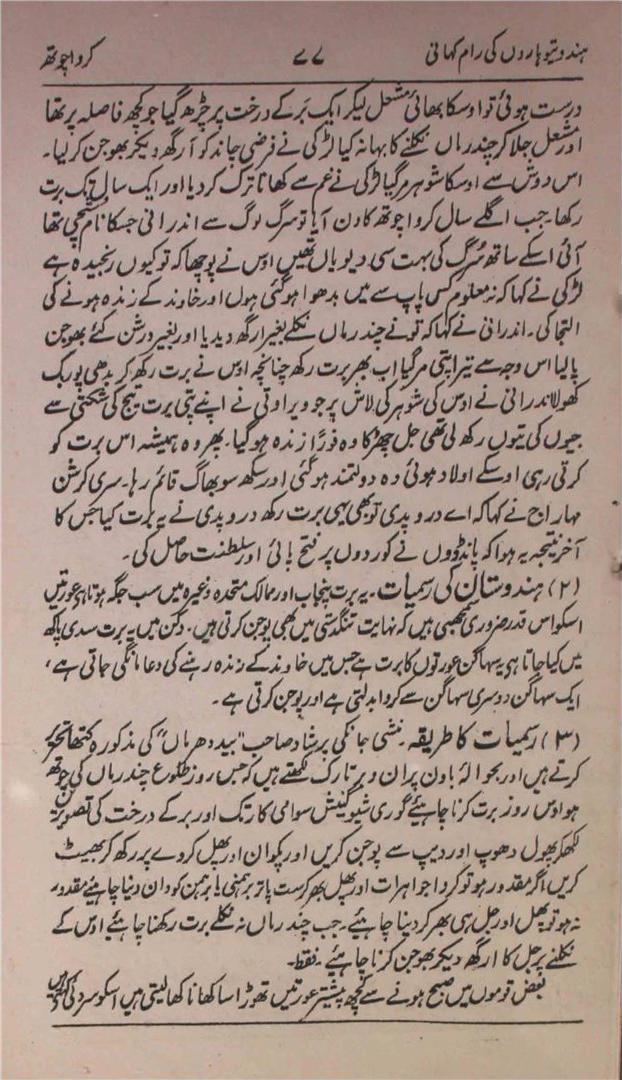 ہندو تیوہاروں کی رام کہانی ۷۷ کرواچوتھ
درست ہوئی تو اوسکا بھائی مشعل لیکر ایک بَر کے درخت پر چڑھ گیا جو کچھ فاصلہ پر تھا
اور مشعل جلا کر چندرماں نکلنے کا بہانہ کیا لڑکی نے فرضی چاند کو اَرگھ دیکر بھوجن کرلیا۔
اس دوش سے اوسکا شوہر مرگیا لڑکی نے غم سے کھانا ترک کردیا اور ایک سال تک برت
رکھا۔ جب اگلے سال کرواچوتھ کا دن آیا تو سرگ لوگ سے اندرانی جسکا نام سچی تھا
آئی اسکے ساتھ سُرگ کی بہت سی دیویاں تھیں اوس نے پوچھا کہ تو کیوں رنجیدہ ہے
لڑکی نے کہا کہ نہ معلوم کس پاپ سے میں بدھوا ہوگئی ہوں اور خاوند کے زندہ ہونے کی
التجا کی۔ اندرانی نے کہا کہ تونے چندرماں نکلے بغیر ارگھ دیدیا اور بغیر درشن کئے بھوجن
پالیا اس وجہ سے تیرا پتی مرگیا اب پھر برت رکھ چنانچہ اوس نے برت رکھ کر بدھی پوربک
کھولا اندرانی نے اوس کی شوہر کی لاش پر جو ویراوتی نے اپنے پتی برت تیج کی شکتی سے
جیوں کی تیوں رکھ لی تھی جل چھڑکا وہ فورًا زندہ ہوگیا۔ پھر وہ ہمیشہ اس برت کو
کرتی رہی اوسکے اولاد ہوئی وہ دولتمند ہوگئی اور سکھ سوبھاگ قائم رہا۔ سری کرشن
مہاراج نے کہا کہ اے دروپدی تو بھی یہی برت رکھ دروپدی نے یہ برت کیا جس کا
آخر نتیجہ یہ ہوا کہ پانڈووں نے کوردوں پر فتح پائی اور سلطنت حاصل کی۔
(۲) ہندوستان کی رسمیات۔ یہ برت پنجاب اور ممالک متحدہ وغیرہ میں سب جگہ ہوتا ہی عورتیں
اسکو اس قدر ضروری سمجھتی ہیں کہ نہایت تنگدستی میں بھی پوجن کرتی ہیں۔ دکن میں یہ برت سدی پاکھ
میں کیا جاتا ہی یہ سہاگن عورتوں کا برت ہے جس میں خاوند کے زندہ رہنے کی دعا مانگی جاتی ہے،
ایک سہاگن دوسری سہاگن سے کروا بدلتی ہے اور پوجن کرتی ہے۔
(۳) رسمیات کا طریقہ۔ منشی جانکی پرشاد صاحب "بید دھرماں" کی مذکورہ کتھا تحریر
کرتے ہیں اور بحوالۂ باون پران و برتارک لکھتے ہیں کہ جس روز طلوع چندرماں کی چوتھ
ہو اوس روز برت کرنا چاہیئے گوری شیو گنیش سوامی کارتک اور بر کے درخت کی تصویریں
لکھکر پھول دھوپ اور دیپ سے پوجن کریں اور پکوان اور پھل کروے پر رکھ کر بھینٹ
کریں اگر مقدور ہو تو کروا جواہرات اور پھل بھر کر ست پاتر برہمنی یا برہمن کو دان دینا چاہیئے مقدور
نہ ہو تو پھل اور جل ہی بھر کر دینا چاہیئے۔ جب چندرماں نہ نکلے برت رکھنا چاہیئے اوس کے
نکلنے پر جل کا ارگھ دیکر بھوجن کرنا چاہیئے۔ فقط۔
بعض قوموں میں صبح ہونے سے کچھ پیشتر عورتیں تھوڑا سا کھانا کھالیتی ہیں اسکو